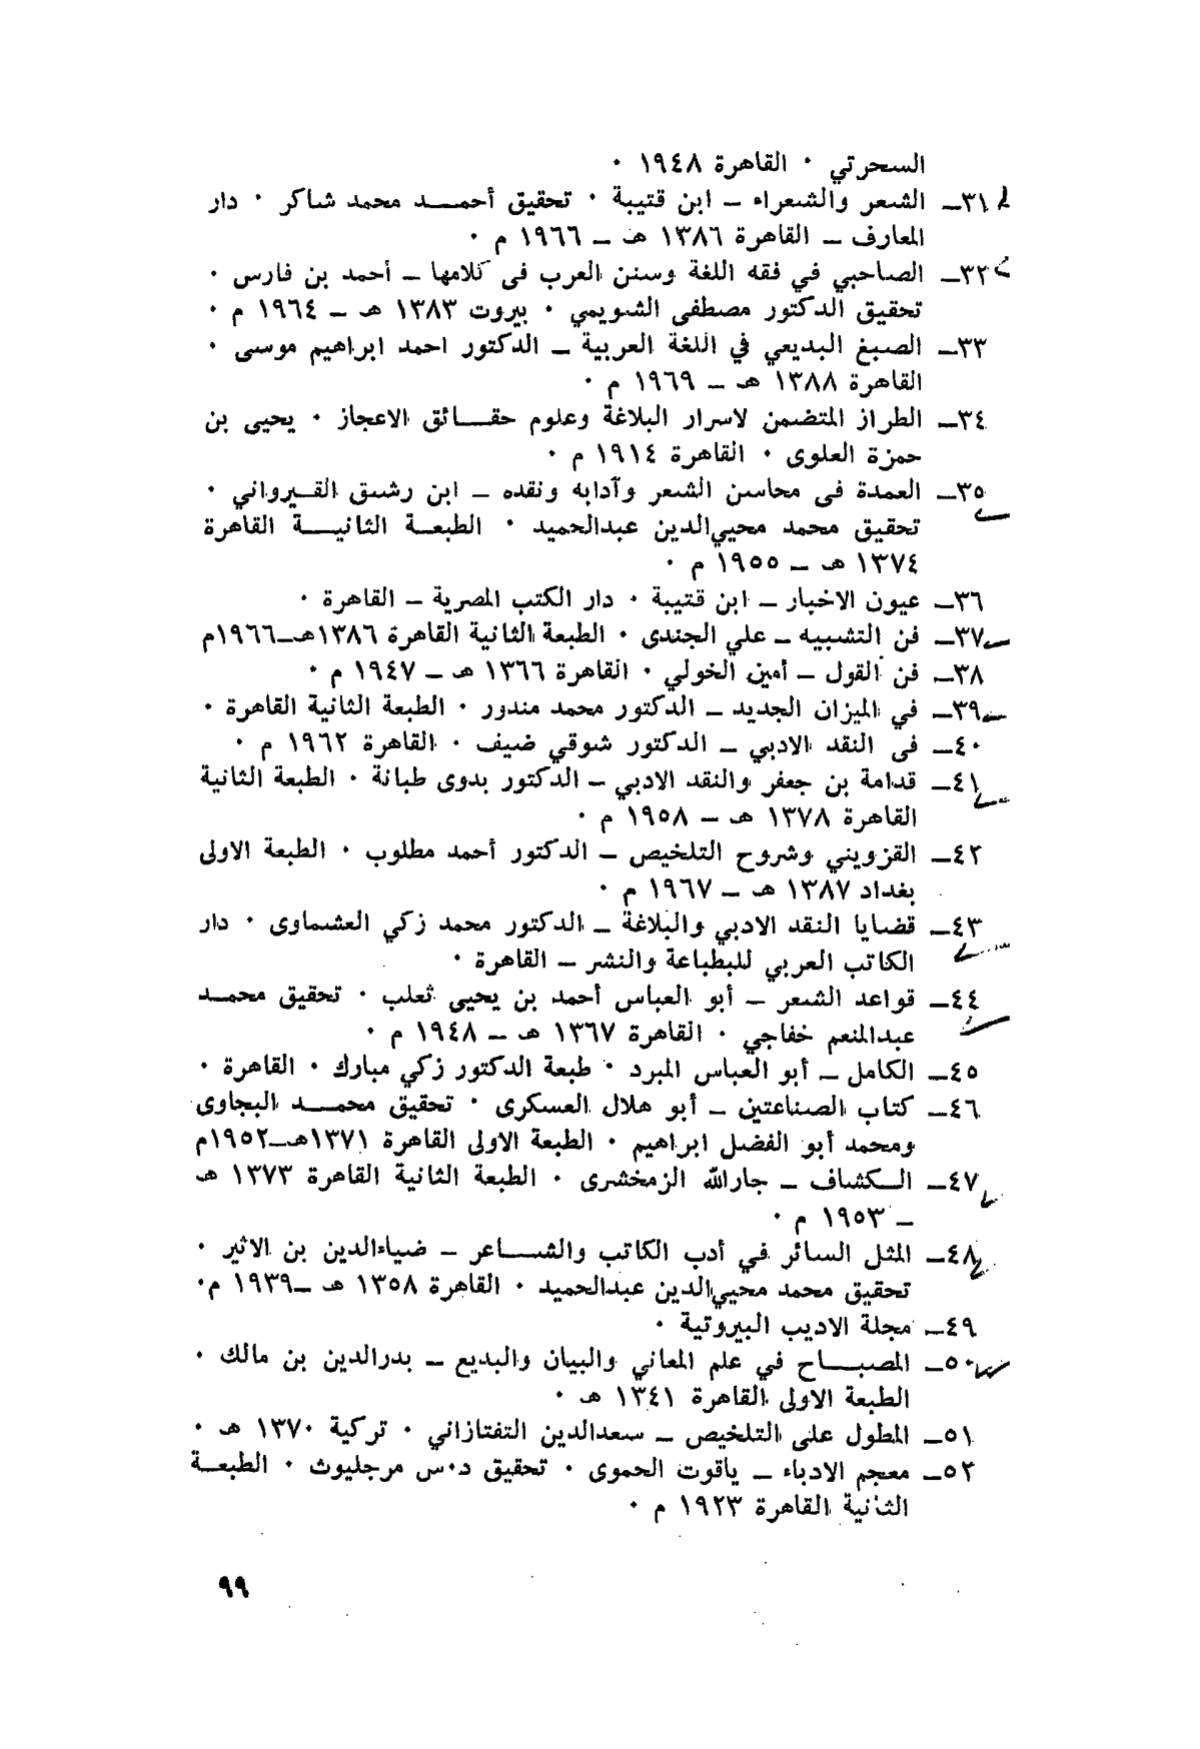 السحرتي ٠ القاهرة ١٩٤٨ ٠
٣١ـ الشعر والشعراء ـ ابن قتيبة ٠ تحقيق أحمـــد محمد شاكر ٠ دار
المعارف ـ القاهرة ١٣٨٦ هـ ـ ١٩٦٦ م ٠
٣٢ـ الصاحبي في فقه اللغة وسنن العرب فى كلامها ـ أحمد بن فارس ٠
تحقيق الدكتور مصطفى الشويمي ٠ بيروت ١٣٨٣ هـ ـ ١٩٦٤ م ٠
٣٣ـ الصبغ البديعي في اللغة العربية ـ الدكتور احمد ابراهيم موسى ٠
القاهرة ١٣٨٨ هـ ـ ١٩٦٩ م ٠
٣٤ـ الطراز المتضمن لاسرار البلاغة وعلوم حقـــائق الاعجاز ٠ يحيى بن
حمزة العلوى ٠ القاهرة ١٩١٤ م ٠
٣٥ـ العمدة فى محاسن الشعر وآدابه ونقده ـ ابن رشيق القـيرواني ٠
تحقيق محمد محيي‌الدين عبدالحميد ٠ الطبعـــة الثانيـــة القاهرة
١٣٧٤ هـ ـ ١٩٥٥ م ٠
٣٦ـ عيون الاخبار ـ ابن قتيبة ٠ دار الكتب المصرية ـ القاهرة ٠
٣٧ـ فن التشبيه ـ علي الجندى ٠ الطبعة الثانية القاهرة ١٣٨٦هـ ـ١٩٦٦م
٣٨ـ فن القول ـ أمين الخولي ٠ القاهرة ١٣٦٦ هـ ـ ١٩٤٧ م ٠
٣٩ـ في الميزان الجديد ـ الدكتور محمد مندور ٠ الطبعة الثانية القاهرة ٠
٤٠ـ فى النقد الادبي ـ الدكتور شوقي ضيف ٠ القاهرة ١٩٦٢ م ٠
٤١ـ قدامة بن جعفر والنقد الادبي ـ الدكتور بدوى طبانة ٠ الطبعة الثانية
القاهرة ١٣٧٨ هـ ـ ١٩٥٨ م ٠
٤٢ـ القزويني وشروح التلخيص ـ الدكتور أحمد مطلوب ٠ الطبعة الاولى
بغداد ١٣٨٧ هـ ـ ١٩٦٧ م ٠
٤٣ـ قضايا النقد الادبي والبلاغة ـ الدكتور محمد زكي العشماوى ٠ دار
الكاتب العربي للبطباعة والنشر ـ القاهرة ٠
٤٤ـ قواعد الشعر ـ أبو العباس أحمد بن يحيى ثعلب ٠ تحقيق محمـــد
عبدالمنعم خفاجي ٠ القاهرة ١٣٦٧ هـ ـ ١٩٤٨ م ٠
٤٥ـ الكامل ـ أبو العباس المبرد ٠ طبعة الدكتور زكي مبارك ٠ القاهرة ٠
٤٦ـ كتاب الصناعتين ـ أبو هلال العسكرى ٠ تحقيق محمـــد البجاوى
ومحمد أبو الفضل ابراهيم ٠ الطبعة الاولى القاهرة ١٣٧١هـ ـ١٩٥٢م
٤٧ـ الـكشاف ـ جارالله الزمخشرى ٠ الطبعة الثانية القاهرة ١٣٧٣ هـ
ـ ١٩٥٣ م ٠
٤٨ـ المثل السائر في أدب الكاتب والشـــاعر ـ ضياءالدين بن الاثير ٠
تحقيق محمد محيي‌الدين عبدالحميد ٠ القاهرة ١٣٥٨ هـ ـ١٩٣٩ م٠
٤٩ـ مجلة الاديب البيروتية ٠
٥٠ـ المصبـــاح في علم المعاني والبيان والبديع ـ بدرالدين بن مالك ٠
الطبعة الاولى القاهرة ١٣٤١ هـ ٠
٥١ـ المطول على التلخيص ـ سعدالدين التفتازاني ٠ تركية ١٣٧٠ هـ ٠
٥٢ـ معجم الادباء ـ ياقوت الحموى ٠ تحقيق د٠س مرجليوث ٠ الطبعـــة
الثانية القاهرة ١٩٢٣ م ٠
٩٩